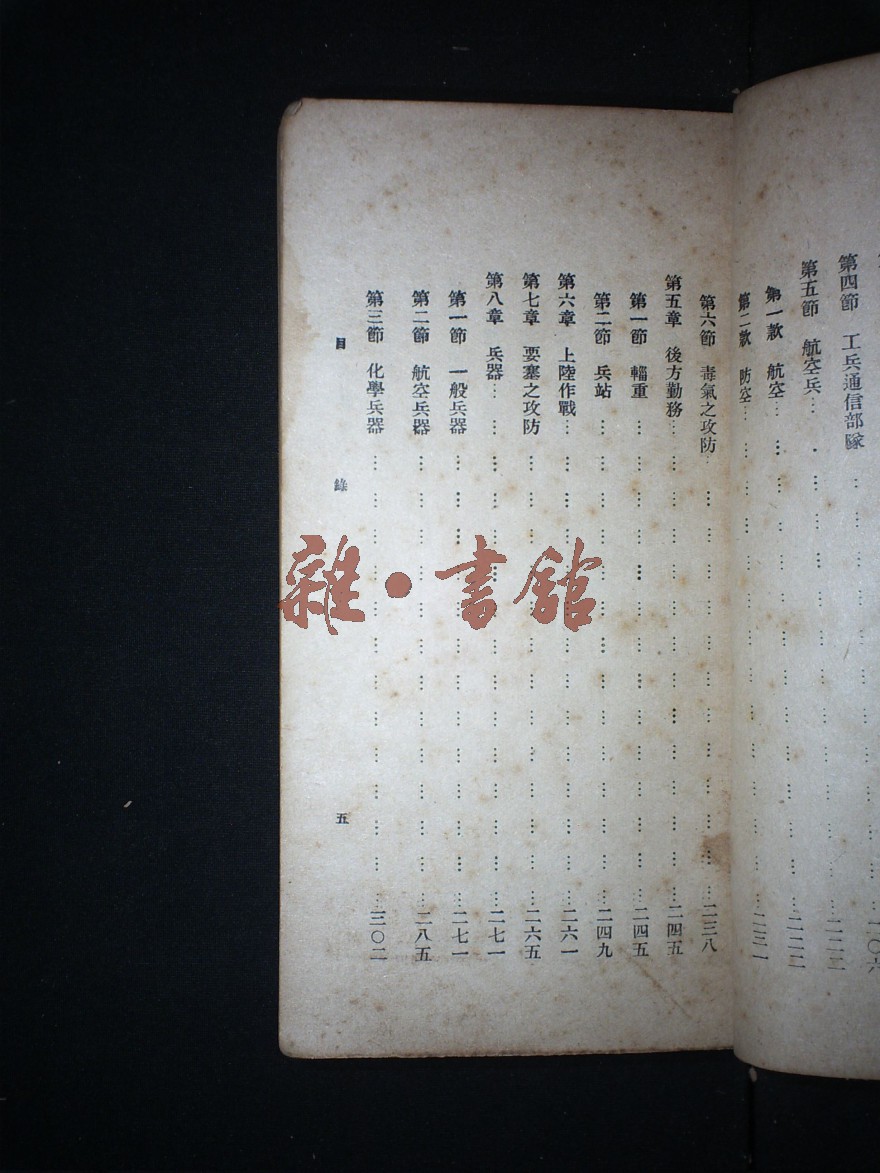 第四節 工兵通信部隊……二〇六
第五節 航空兵……二二二
第一款 航空……二二二
第二款 防空……二三一
第六節 毒氣之攻防……二三八
第五章 後方勤務……二四五
第一節 輜重……二四五
第二節 兵站……二四九
第六章 上陸作戰……二六一
第七章 要塞之攻防……二六五
第八章 兵器……二七一
第一節 一般兵器……二七一
第二節 航空兵器……二八五
第三節 化學兵器……三〇二
目 錄 五
雜·書館